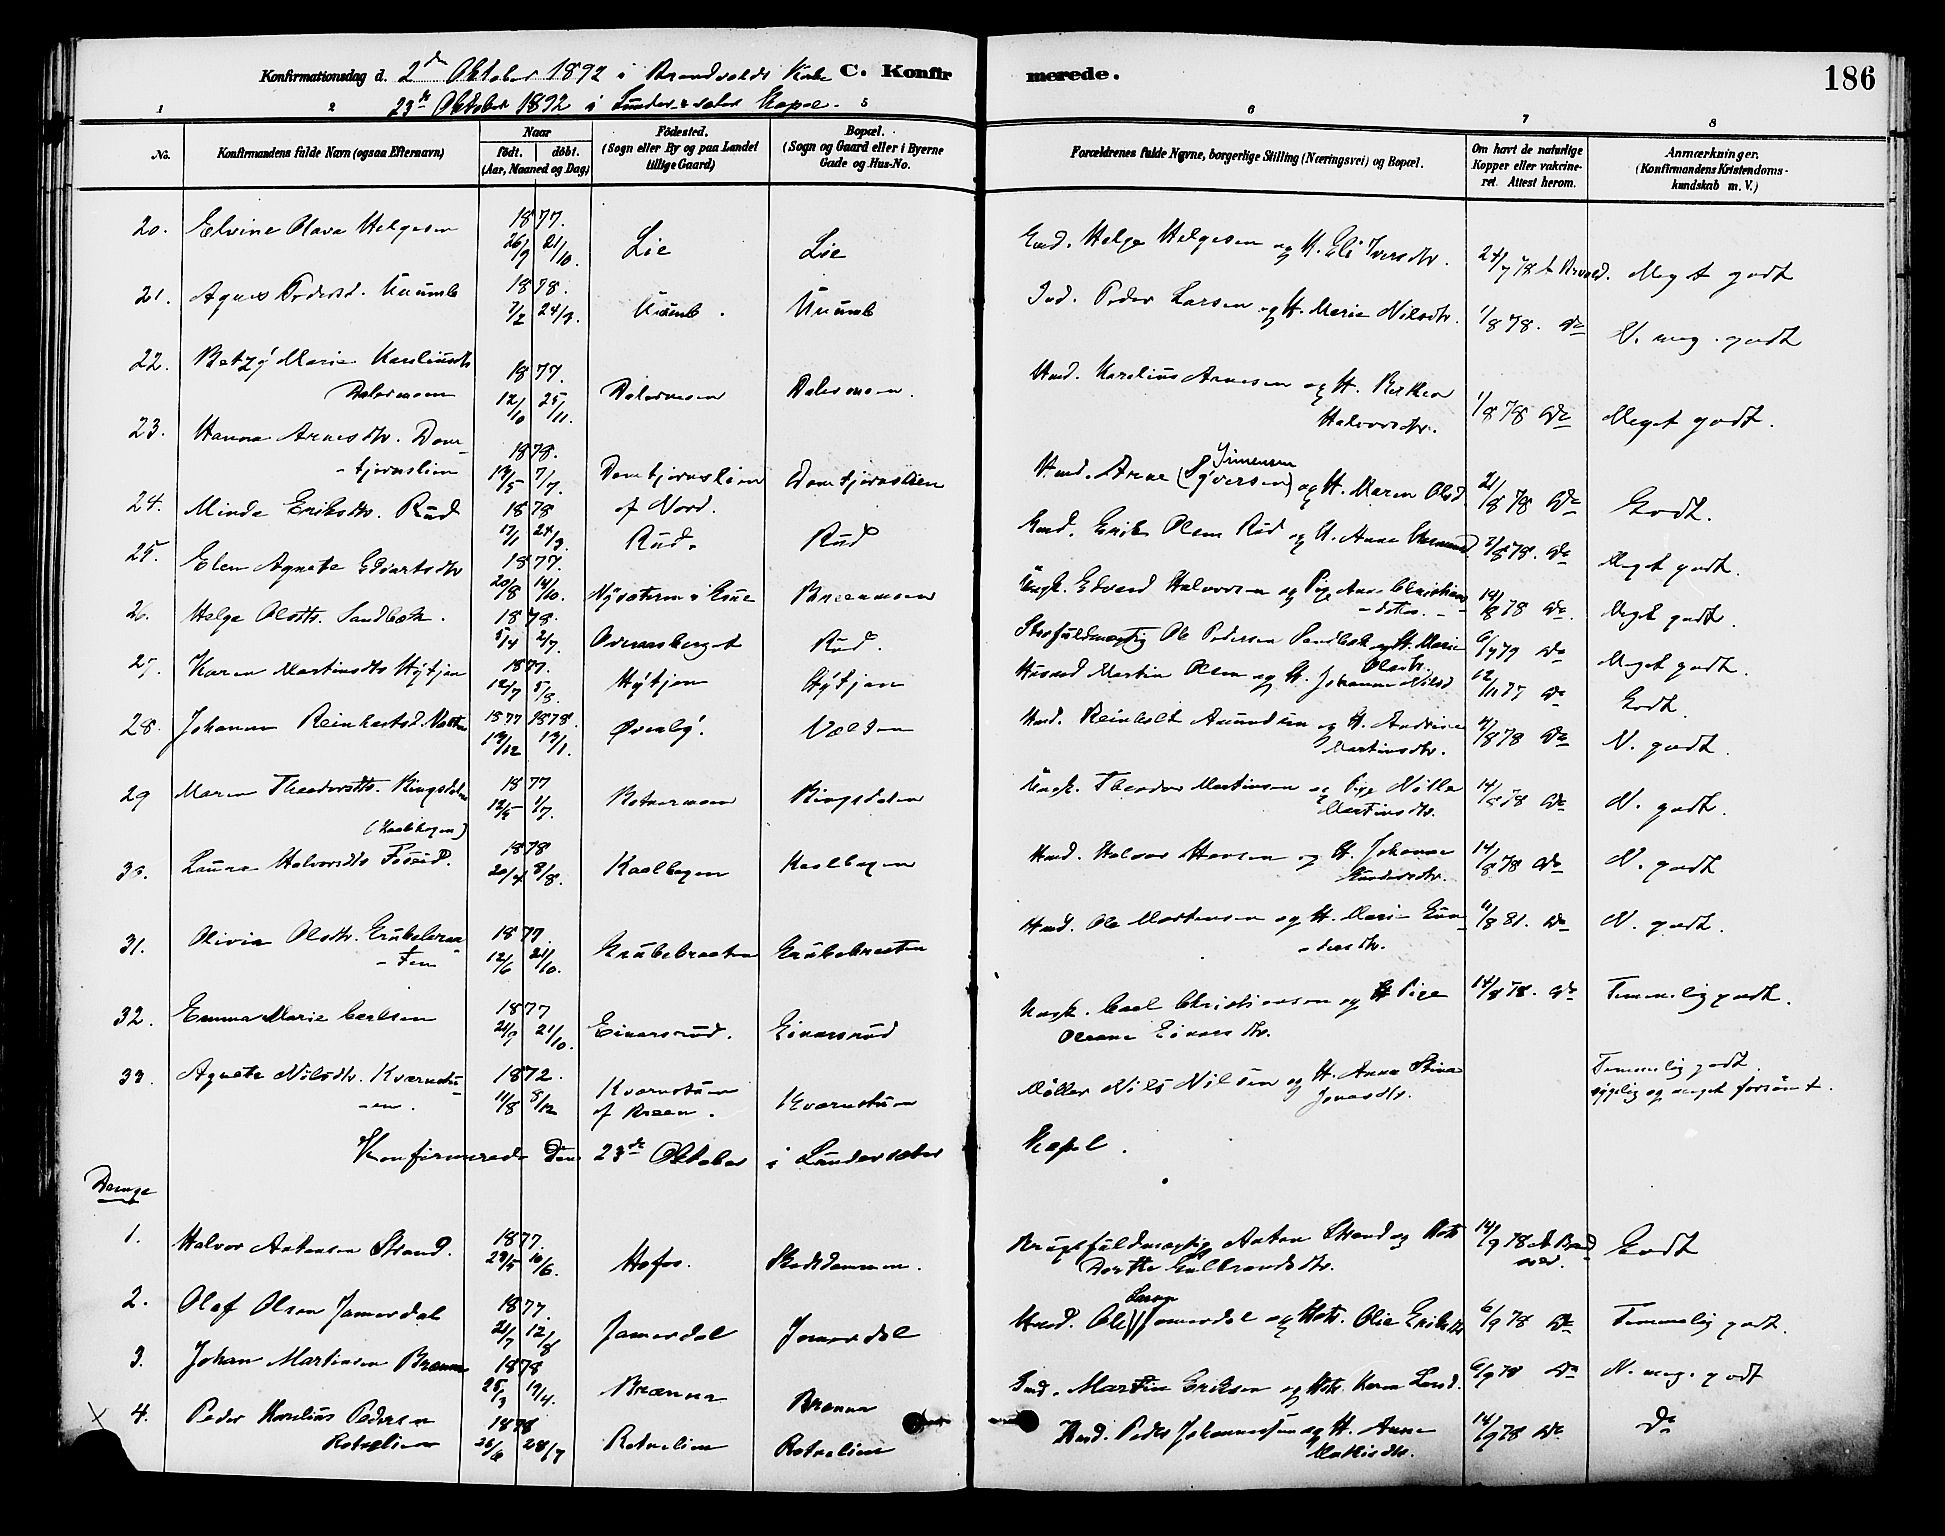 Konfirmationsdag d. 2den Oktober 1892 i Brandvolds Kirke C. Konfirmerede. 186
23de Oktober 1892 i Lundersæter Kapel.
1 2 5 6 7 8
No. Konfirmandens fulde Navn (ogsaa Efternavn) Naar født. døbt. (Aar, Maaned og Dag) Fødested. (Sogn eller By og paa Landet tillige Gaard) Bopæl. (Sogn og Gaard eller i Byerne Gade og Hus-No.) Forældrenes fulde Navne, borgerlige Stilling (Næringsvei) og Bopæl. Om havt de naturlige Kopper eller vakcineret. Attest herom. Anmærkninger. (Konfirmandens Kristendomskundskab m. V.)
20. Elvine Olava Helgesen 1877. 26/9 21/10. Lie Lie Gmd. Helge Helgesen og H. Eli Iversdtr. Meget godt
21. Agnes Pedersd. Kuumb 1878. 7/2 24/3. Kuumb. Kuumb Ind. Peder Larsen og H. Marie Nilsdtr. 1/8 78. Do N. meg. godt
22. Betzy Marie Kareliusdtr Dalermoen 1877. 12/10 25/11. Dalermoen Dalermoen. Hmd. Karelius Arnesen og H. Halvorsdtr. 1/8 78 Do Meget godt.
23. Hanna Arnesdtr. Domtjernslien 1878. 7/7. Domtjernslien af Nord. Domtjernslien Hmd. Arne (Syversen) Simensen og H. Maren Olsd. 21/8 78 Do Godt.
24. Minda Eriksdtr. Rud 1878 17/1 24/3. Rud. Rud Gmd. Erik Olsen Rud og H. Anna 78. Do Meget godt.
25. Elen Agnete Edvartsdtr 1877. 20/8 14/10. Nysæteren i Grue Breenmoen Ungk. Edvard Halvorsen og Pige Anne Christiansdatter. 14/8 78 Do Meget godt.
26. Helga Olsdtr. Sandbæk. 1878. 5/4 2/7 Overnsberget Rud. Ole Pedersen Sandbæk og H. Marie Olsdtr. 6/9 79 Do Meget godt.
27. Karen Martinsdtr Hytjen 1877. 12/7 5/8. Hytjen Hytjen Husmd Martin Olsen og H. Johanne Nilsd. 12/11 77 Do Godt.
28. Johanne 1877 1878. 19/12 13/1. Øverby. Hmd. Reinholt Amundsen og H. Andrine Martinsdtr. 78 Do N. godt.
29 Maren Theodorsdtr. Ringsdalen 1877 12/5 1/7. Rotnermoen Ringsdalen Ungk. Theodor Martinsen og Pige Martinsdtr. 14/8 78 Do N. godt.
30. Laura Halvorsdtr Fossid. (Kaalhagen) 1878 20/4 8/8. Kaalhagen Kaalhagen Hmd. Halvor Hansen og H. Johanne Gundersdtr. 14/8 78 Do N. godt
31. Olivia Olsdtr. Grubebraaten 1877. 12/6 21/10. Grubebraaten Grubebraaten Hmd. Ole Mortensen og H. Marie Gundersdtr. 11/8 81. Do N. godt.
32. Emma Marie Carlsen 1877 21/9 21/10. Einarsrud. Einarsrud Ungk. Carl Christiansen og Pige Oleane Einarsdtr. 14/8 78. Do Temmelig godt.
33. Agnete Nilsdtr. Kværnstuen. 1872. 11/8 8/12 Kværnstuen af Breen. Kværnstuen Møller Nils Nilsen og H. Anna Stina Jonasdtr. Temmelig godt. sygelig og meget forsømt.
Konfirmerede den 23de Oktober i Lundersæter Kapel.
Drenge
1. Halvor Antonsen Strand. 1877. 29/5 10/6. Hofos. Skodsdammen. Brugsfuldmægtig Anton Strand og Hstr. Dorthe Gulbrandsdtr. 14/9 78 Godt
2. Olaf Olsen Jamerdal 1877. 21/7 12/8 Jamerdal Jamerdal Hmd. Ole Larsen Jamerdal og Hstr. Olia Eriksdtr. 6/9 78 Do Temmelig godt.
3. Johan Martinsen Brænna 1878 25/3 19/4. Brænna Brænna Gmd. Martin Eriksen og Hstr. Karen Larsd. 6/9 78 Do N. meg. godt
4. Peder Karelius Pedersen Rotnelien 1878 26/6 28/7 Rotnelien Rotnelien Hmd. Peder Johannessen og H. Anne Mathisdtr. 14/9 78 Do Do